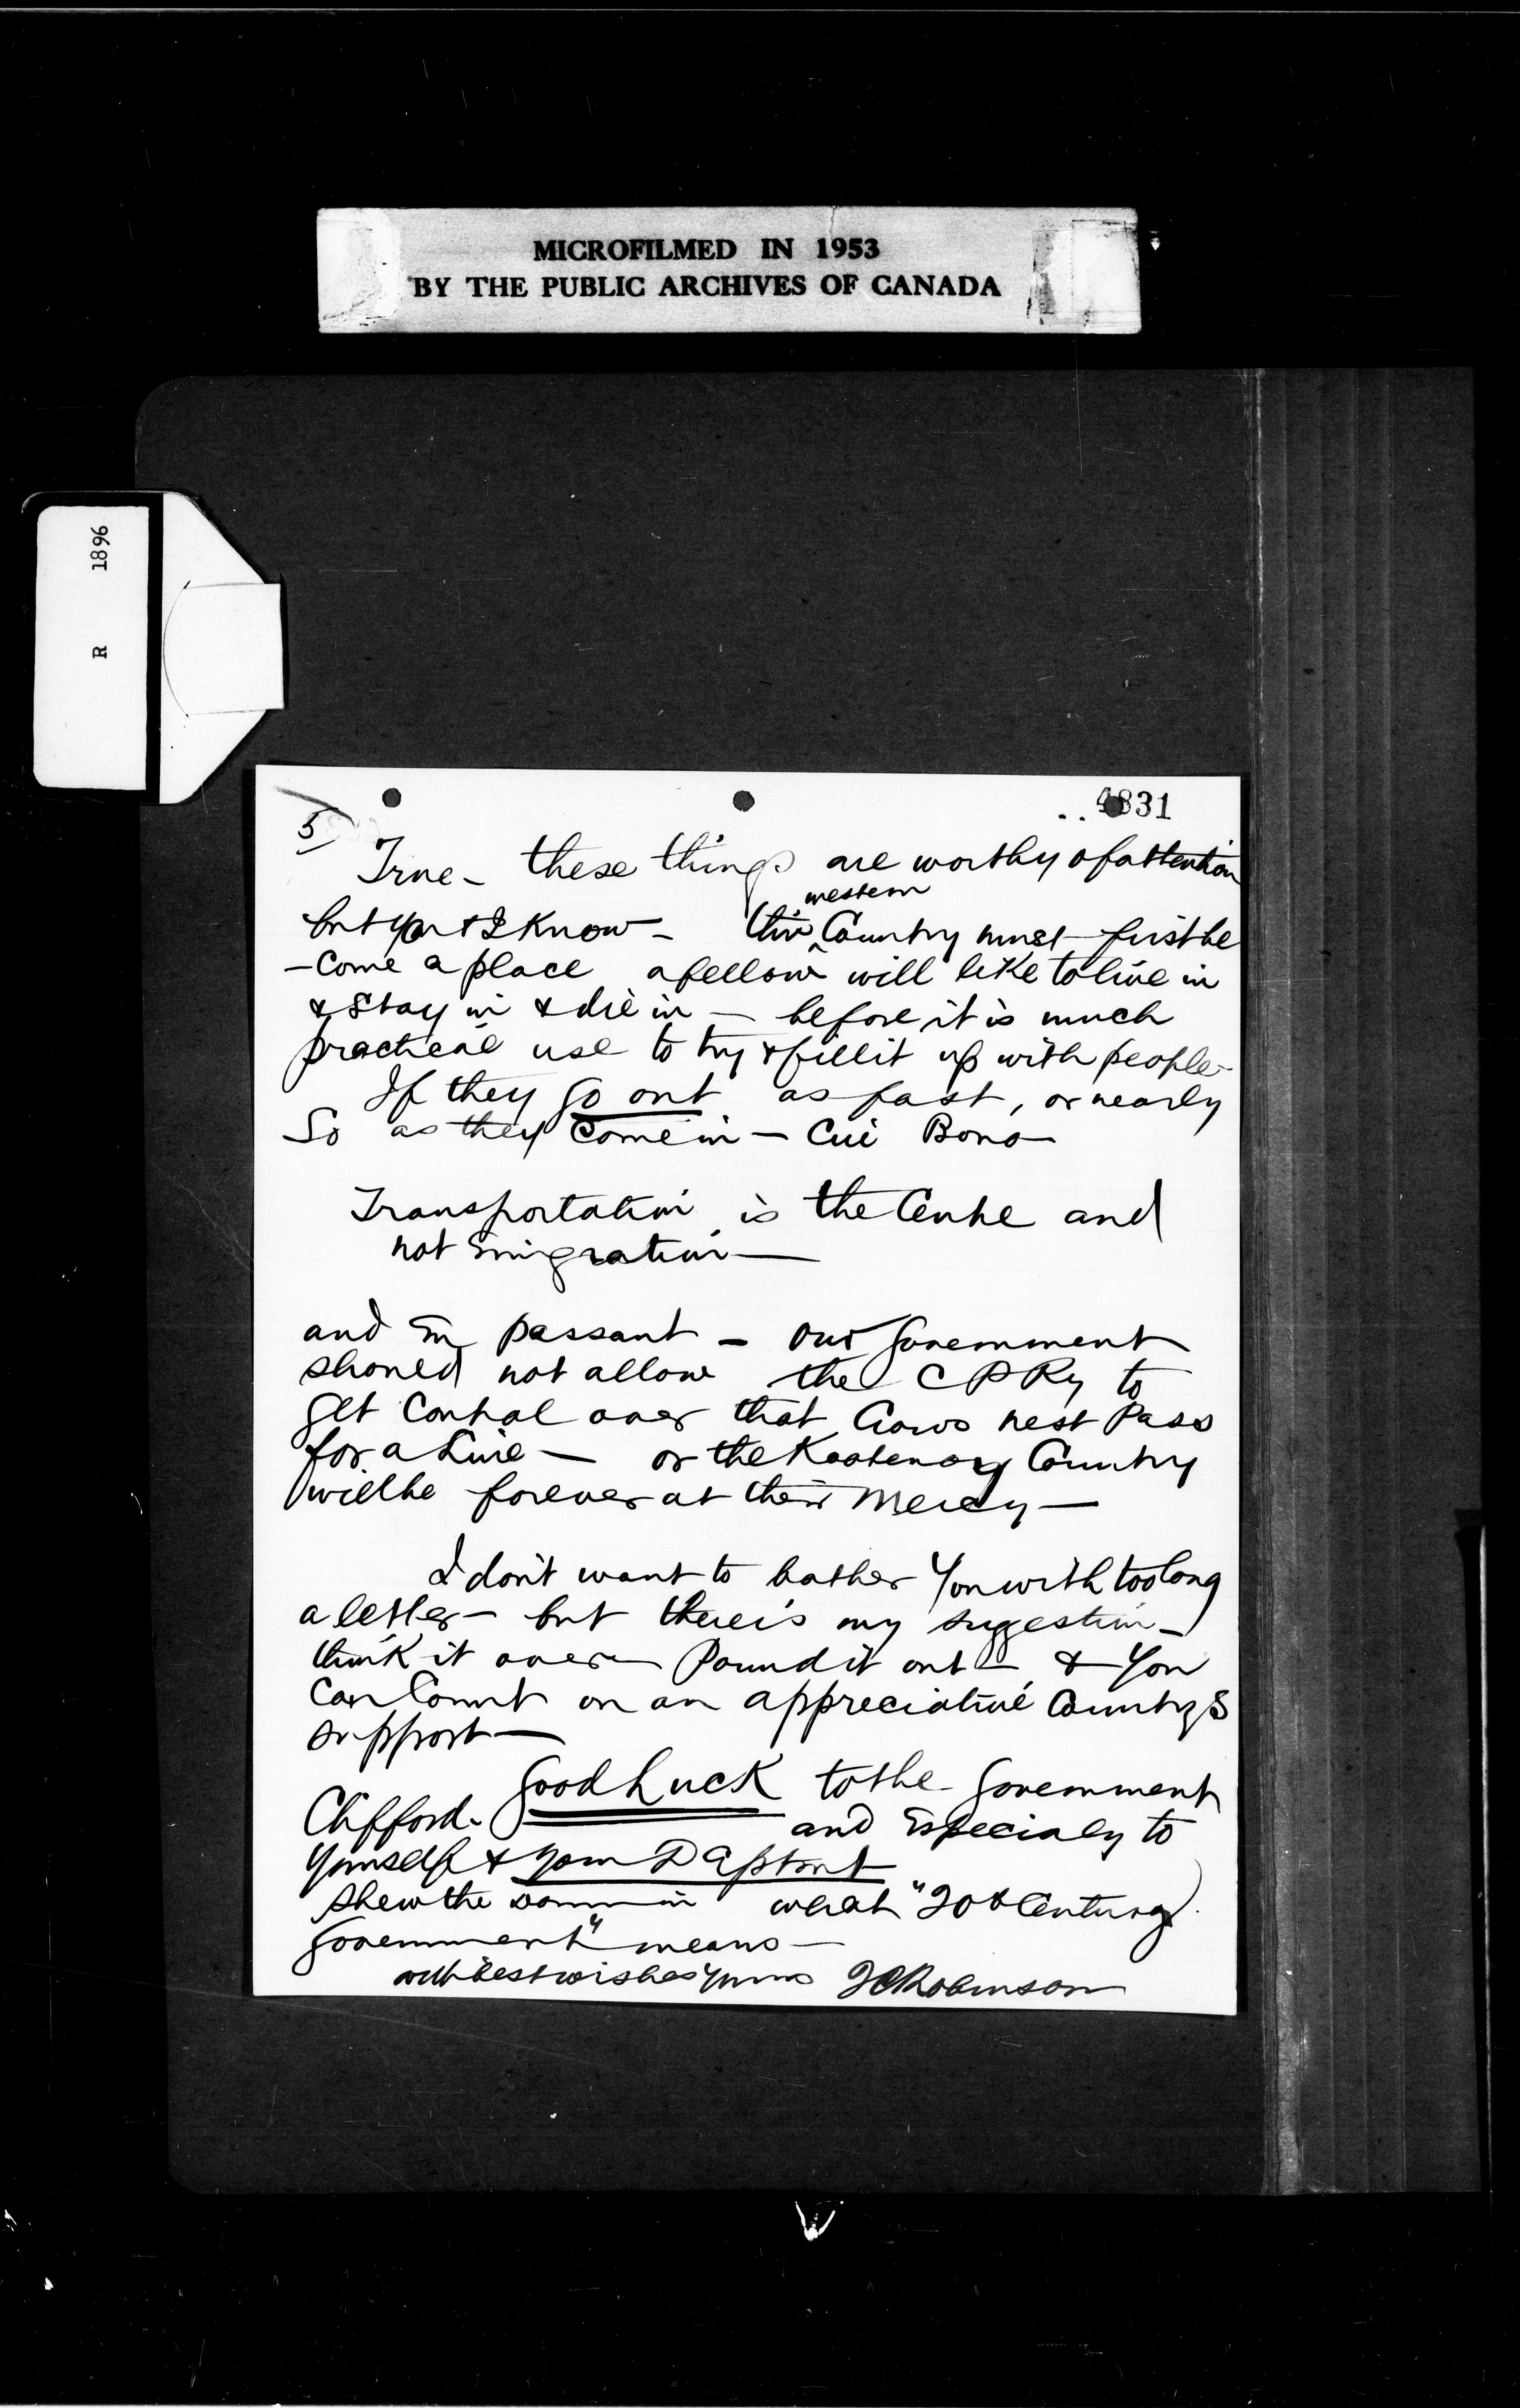 MICROFILMED IN 1953
BY THE PUBLIC ARCHIVES OF CANADA
R 1896
4831
5
True - these things are worthy of attention
but you & I know - this western Country must first be
- come a place a fellow will like to live in
& stay in & die in - before it is much
practical use to try & fill it up with people -
If they go out as fast, or nearly
So as they come in - Cui Bono
Transportation is the Centre and
not Emigration -
and En passant - our Government
should not allow the C P Ry to
get Control over that Crows nest Pass
for a Line - or the Kootenay Country
will be forever at their mercy -
I don't want to bother you with too long
a letter - but there's my suggestion -
think it over - Pound it out - & you
can Count on an appreciative Country's
support -
Good Luck to the Government
Clifford - and Especialy to
yourself & your Daptmt
Shew the Domin in what "20th Century
Government" means -
with best wishes yours J C Robinson